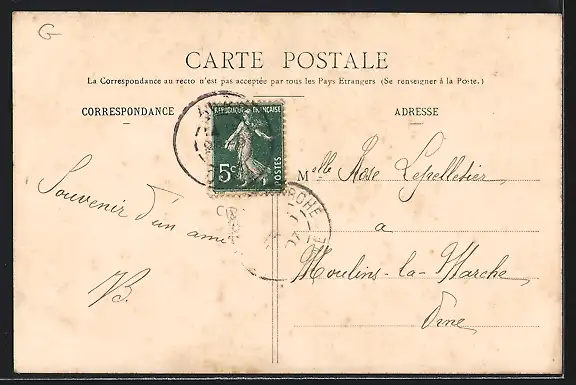 G
CARTE POSTALE
La Correspondance au recto n'est pas acceptée par tous les Pays Etrangers (Se renseigner à la Poste.)
CORRESPONDANCE
ADRESSE
REPUBLIQUE FRANÇAISE
5c
POSTES
Souvenir d'un ami
B.
Mlle Rose Lepelletier
a
Moulins-la-Marche
Orne
RCHE